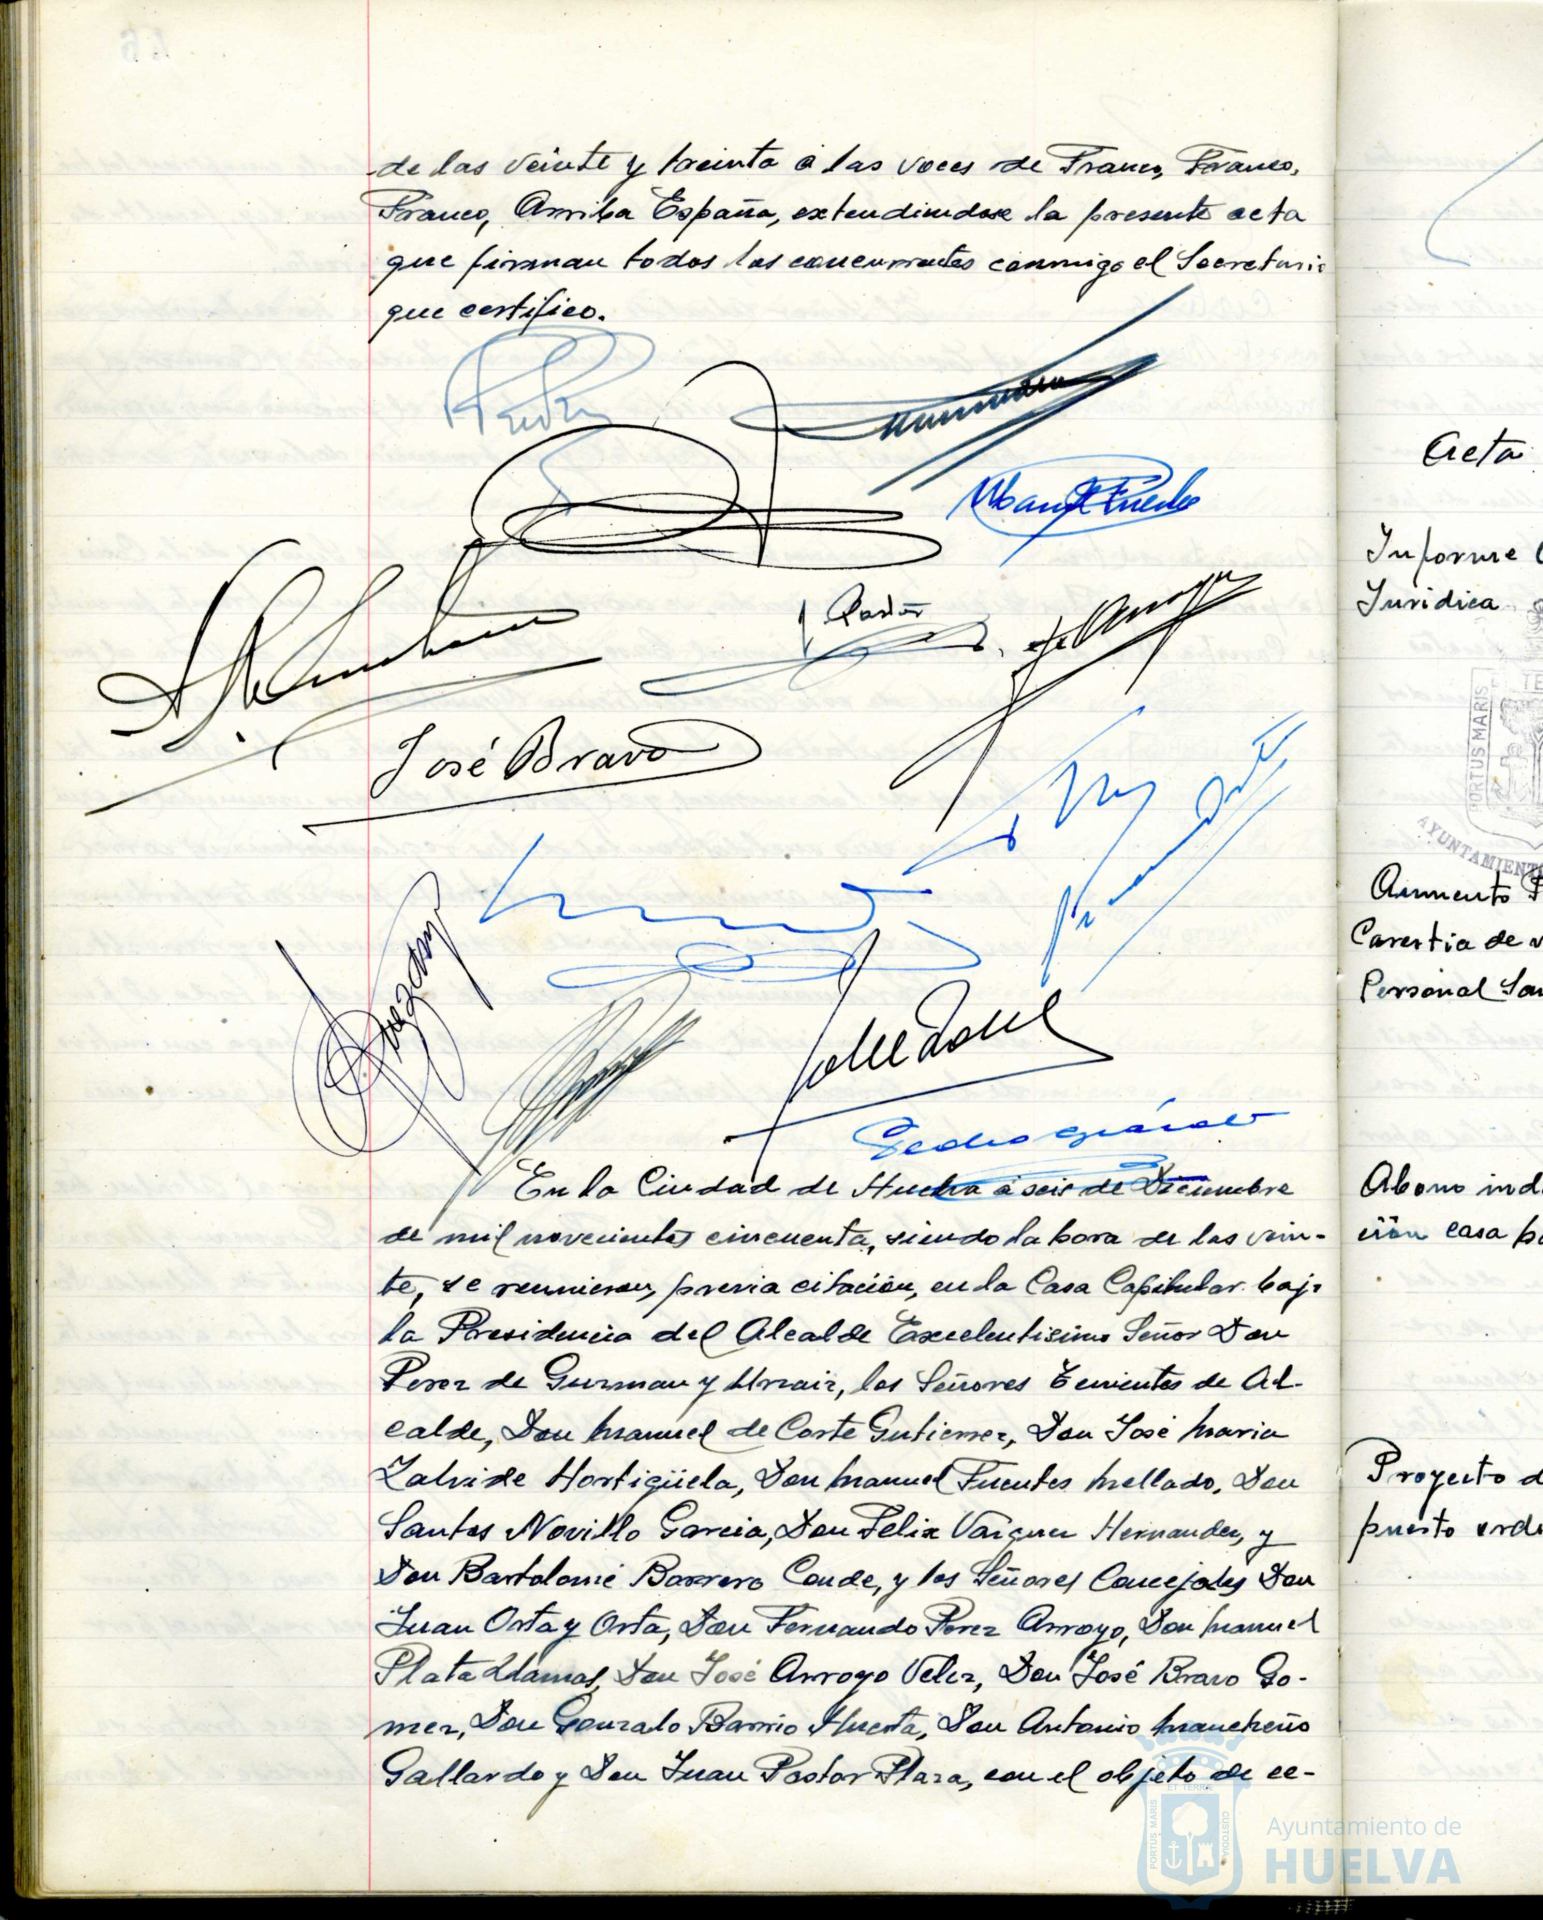 de las veinte y treinta a las voces de Franco, Franco,
Franco, Arriba España, extendiendose la presente acta
que firman todos los concurrentes conmigo el Secretario
que certifico.
Manuel Fuentes
J Pastor
José Bravo
En la Ciudad de Huelva a seis de Diciembre
de mil novecientos cincuenta, siendo la hora de las vein-
te, se reunieron, previa citacion, en la Casa Capitular bajo
la Presidencia del Alcalde Excelentisimo Señor Don
Perez de Guzman y Urzaiz, los Señores Tenientes de Al-
calde, Don Manuel de Corte Gutierrez, Don José Maria
Zalvide Hortigüela, Don Manuel Fuentes Mellado, Don
Santos Novillo Garcia, Don Felix Vazquez Hernandez, y
Don Bartolomé Barrero Conde, y los Señores Concejales Don
Juan Orta y Orta, Don Fernando Perez Arroyo, Don Manuel
Plata Llamas, Don José Arroyo Velez, Don José Bravo Go-
mez, Don Gonzalo Barrio Huerta, Don Antonio Mancheño
Gallardo y Don Juan Pastor Plaza, con el objeto de ce-
Acta
Informe
Juridica
PORTUS MARIS
AYUNTAMIENTO
Aumento
Carestia de v
Personal San
Abono ind
ción casa
Proyecto d
puesto ord
PORTUS MARIS ET TERRE CUSTODIA
Ayuntamiento de
HUELVA